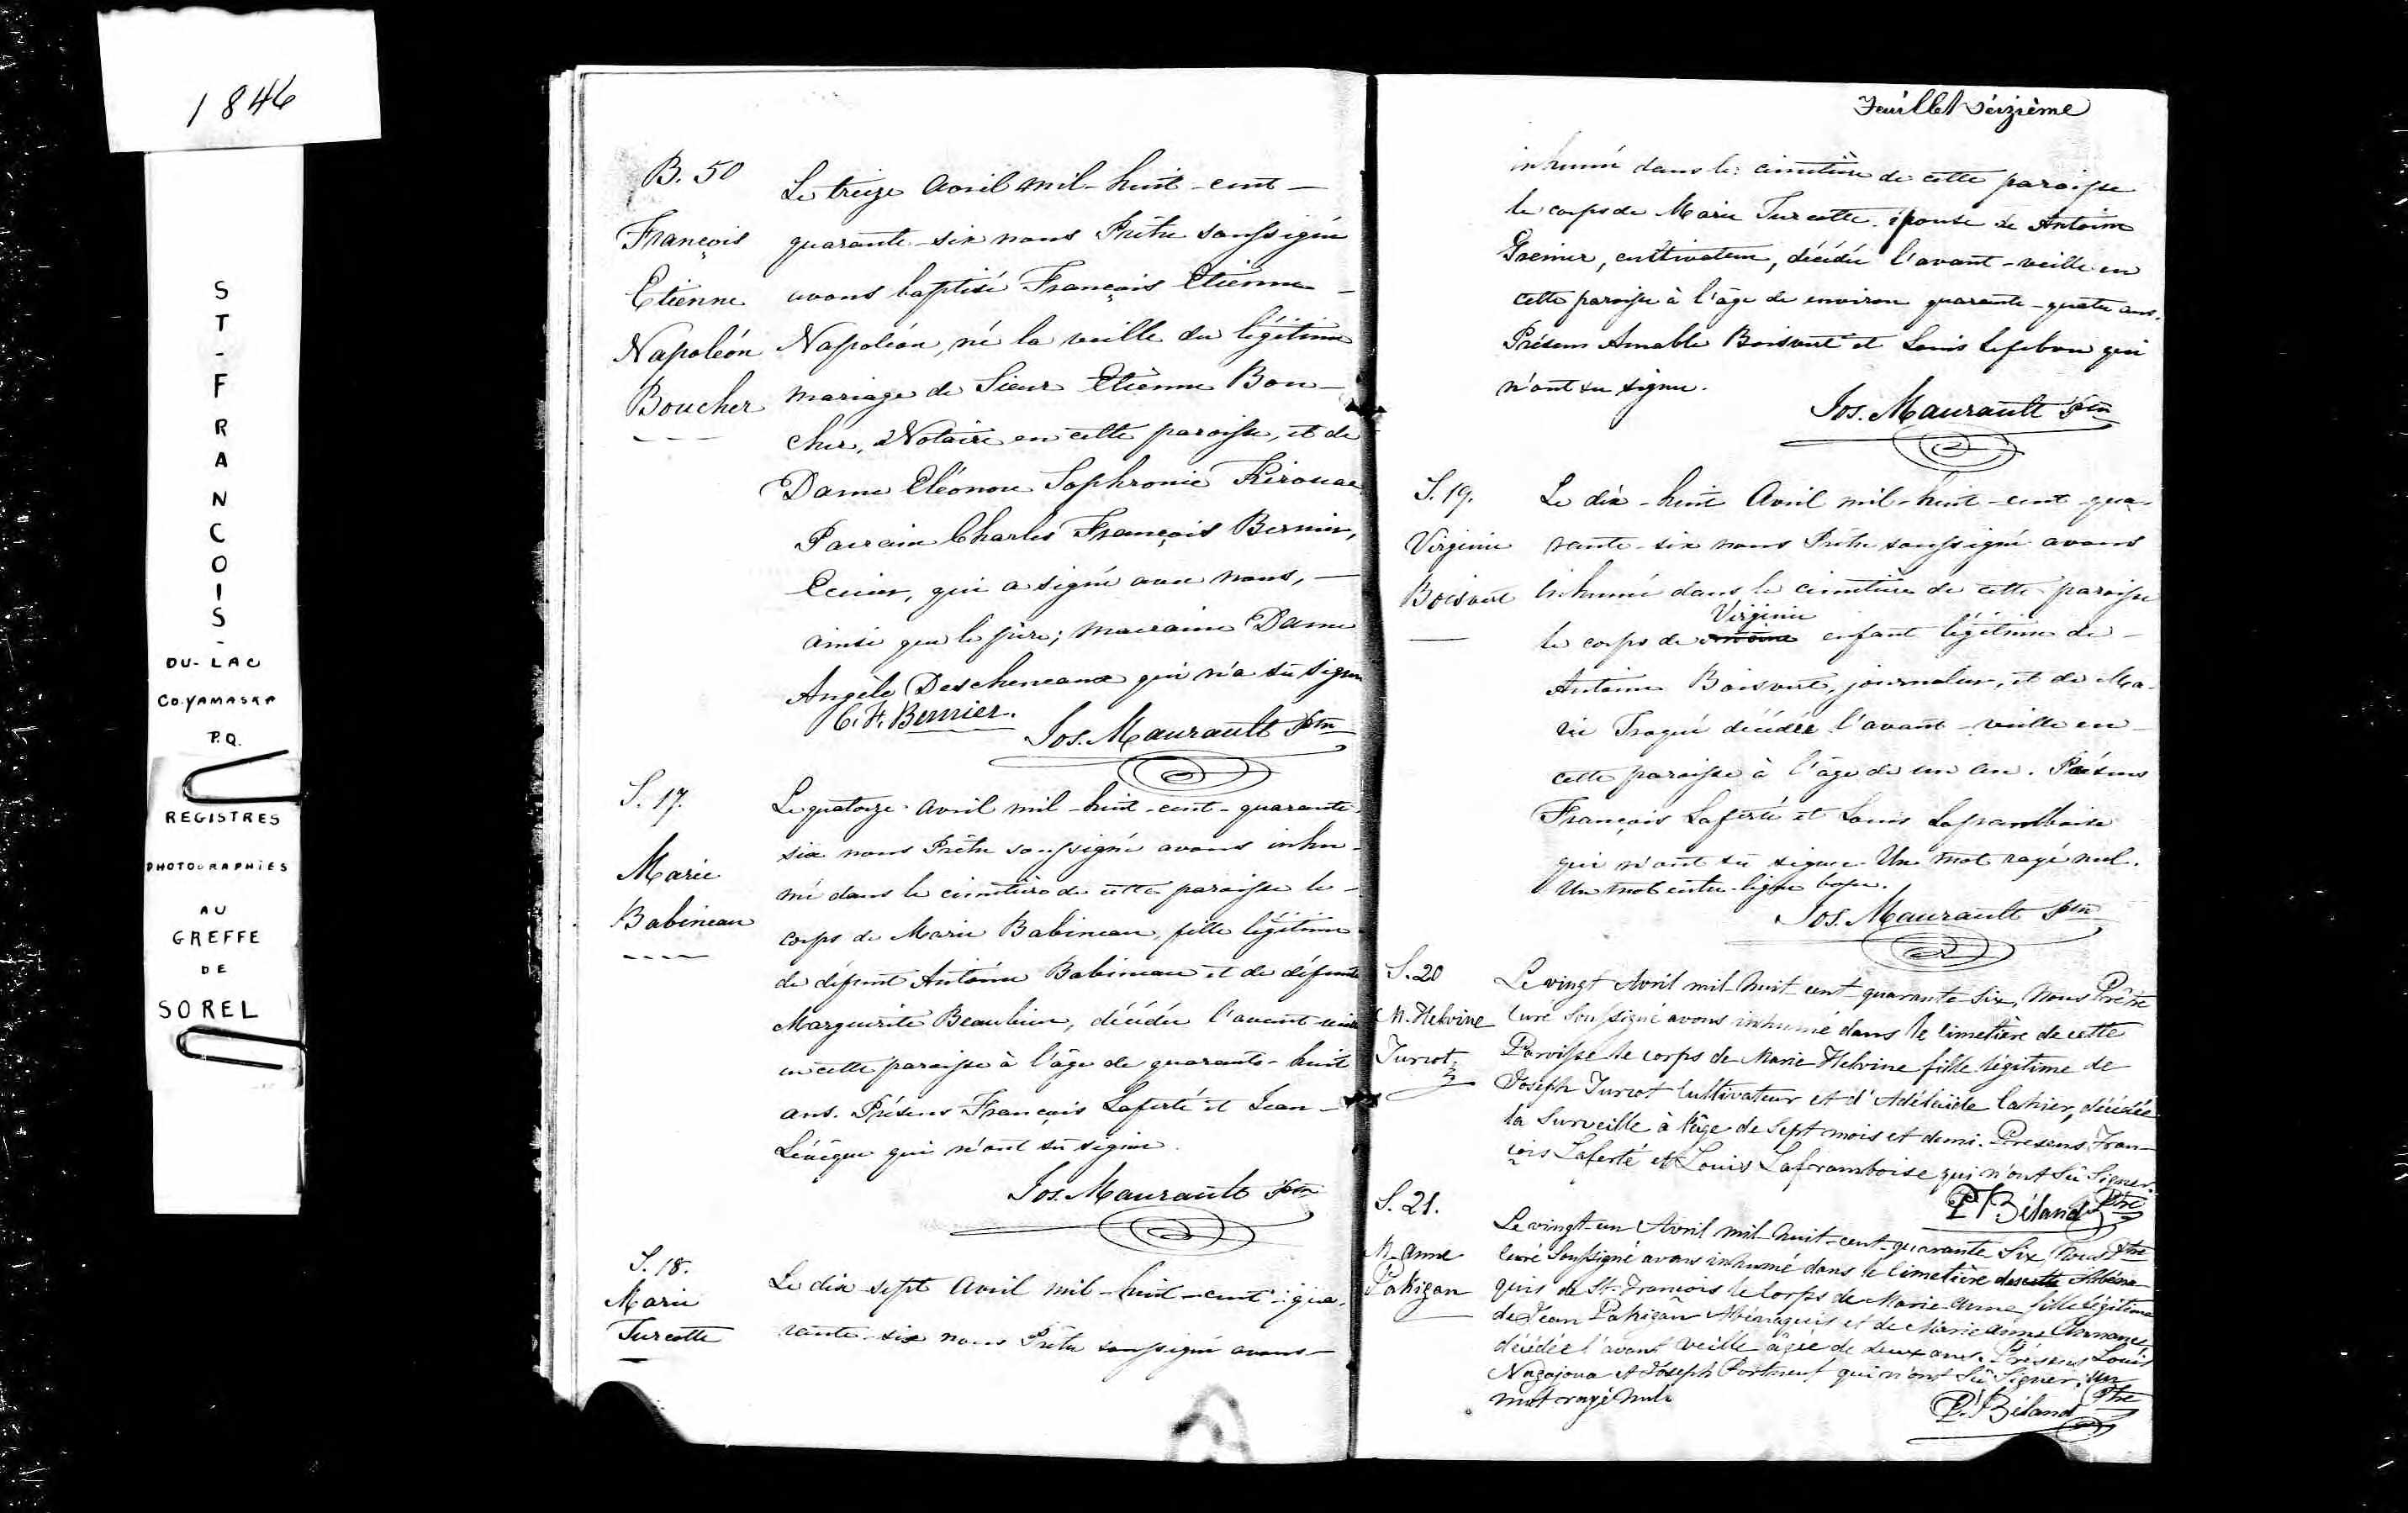 1846
ST-FRANCOIS-
DU-LAC
CO.YAMASKA
P.Q.
REGISTRES
PHOTOGRAPHIES
AU
GREFFE
DE
SOREL
B. 50
François
Etienne
Napoléon
Boucher
Le treize Avril mil-huit-cent-
quarante-six nous Prêtre soussigné
avons baptisé François Etienne-
Napoléon, né la veille du légitime
mariage de Sieur Etienne Bou-
cher, Notaire en cette paroisse, et de
Dame Eléonore Sophronie Kirouac
Parrain Charles François Bernier,
Ecuier, qui a signé avec nous, -
ainsi que le père; marraine Dame
Angèle Descheneaux qui n'a su signer
C. F. Bernier.
Jos. Maurault Ptre
S. 17.
Marie
Babineau
Le quatorze Avril mil-huit-cent-quarante-
six nous Prêtre soussigné avons inhu-
mé dans le cimetière de cette paroisse le-
corps de Marie Babineau, fille légitime
de défunt Antoine Babineau et de défunte
Marguerite Beaulieu, décédée l'avant-veille
en cette paroisse à l'âge de quarante-huit
ans. Présens François Laferté et Jean-
Lévêque qui n'ont su signer.
Jos. Maurault Ptre
S. 18.
Marie
Turcotte
Le dix-sept Avril mil-huit-cent-qua-
rante-six nous Prêtre soussigné avons-
Feuillet Seizième
inhumé dans le cimetière de cette paroisse
le corps de Marie Turcotte, épouse de Antoine
Grenier, cultivateur, décédée l'avant-veille en
cette paroisse à l'âge de environ quarante-quatre ans.
Présens Amable Boisvert et Louis Lefebvre qui
n'ont su signer.
Jos. Maurault Ptre
S. 19.
Virginie
Boisvert
Le dix-huit Avril mil-huit-cent-qua-
rante-six nous Prêtre soussigné avons
inhumé dans le cimetière de cette paroisse
Virginie
le corps de enfant légitime de-
Antoine Boisvert, journalier, et de Ma-
rie décédée l'avant-veille en-
cette paroisse à l'âge de un an. Présens
François Laferté et Louis Laframboise
qui n'ont su signer. Un mot rayé nul.
Un mot entre-ligne bon.
Jos. Maurault Ptre
S. 20
M. Helvine
Turcot
Le vingt Avril mil-huit-cent-quarante Six, Nous Prêtre
Curé Soussigné avons inhumé dans le Cimetière de cette
Paroisse le corps de Marie Helvine fille légitime de
Joseph Turcot Cultivateur et d'Adélaïde Cartier, décédée
la Surveille à l'âge de Sept mois et demi. Presens Fran-
çois Laferté et Louis Laframboise qui n'ont Su Signer.
P. Béland Ptre
S. 21.
M. Anne
Pakigan
Le vingt-un Avril mil-huit-cent-quarante Six, Nous Ptre
Curé Soussigné avons inhumé dans le Cimetière des cette Abéna-
quis de St. François le Corps de Marie-Anne fille légitime
de Jean Pakigan Abénaquis et de Marie Anne
décédée l'avant veille âgée de deux ans. Présens Louis
Nagajoua et Joseph Portneuf qui n'ont Su Signer. un
mot rayé nul.
P. Béland Ptre